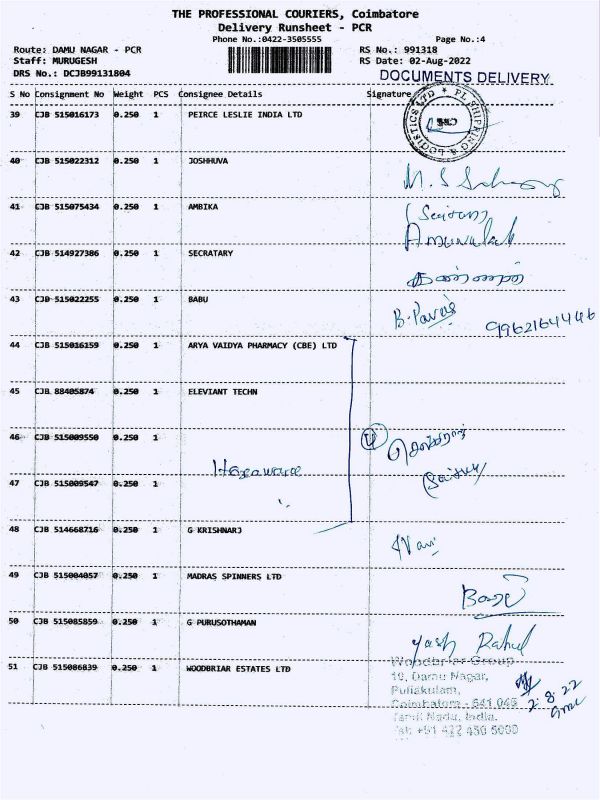 THE PROFESSIONAL COURIERS, Coimbatore
Delivery Runsheet - PCR
Phone No.:0422-3505555
Page No.:4
Route: DAMU NAGAR - PCR
RS No.: 991318
Staff: MURUGESH
RS Date: 02-Aug-2022
DRS No.: DCJB99131804
DOCUMENTS DELIVERY
S No Consignment No Weight PCS Consignee Details Signature
39 CJB 515016173 0.250 1 PEIRCE LESLIE INDIA LTD
40 CJB 515022312 0.250 1 JOSHHUVA
41 CJB 515075434 0.250 1 AMBIKA
42 CJB 514927386 0.250 1 SECRATARY
43 CJB 515022255 0.250 1 BABU
9962164446
44 CJB 515016159 0.250 1 ARYA VAIDYA PHARMACY (CBE) LTD
45 CJB 88405874 0.250 1 ELEVIANT TECHN
46 CJB 515009550 0.250 1
47 CJB 515009547 0.250 1
48 CJB 514668716 0.250 1 G KRISHNARJ
49 CJB 515004057 0.250 1 MADRAS SPINNERS LTD
50 CJB 515085859 0.250 1 G PURUSOTHAMAN
Yash Rahul
51 CJB 515086839 0.250 1 WOODBRIAR ESTATES LTD
Woodbriar Group
10, Damu Nagar,
Puliakulam,
Coimbatore - 641 045
Tamil Nadu, India.
Tel: +91 422 450 5000
2.8.22